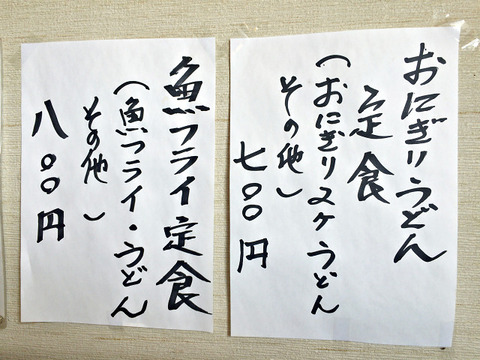 おにぎりうどん
定食
（おにぎり2ケうどん
その他）
七〇〇円
魚フライ定食
（魚フライ・うどん
その他）
八〇〇円